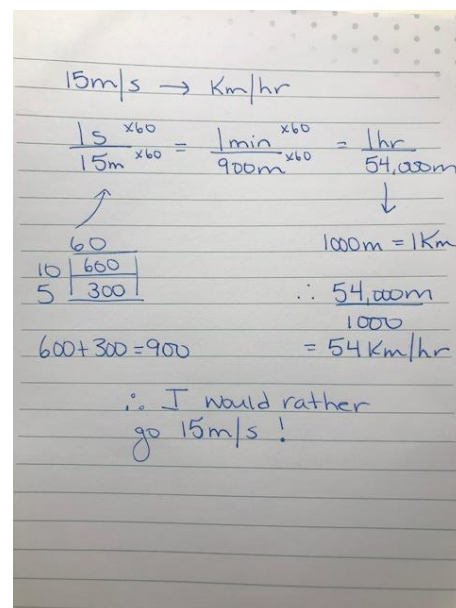 15m/s → Km/hr
1s x60 / 15m x60 = 1min x60 / 900m x60 = 1hr / 54,000m
60
10 | 600
5 | 300
600+300=900
1000m = 1Km
∴ 54,000m / 1000
= 54Km/hr
∴ I would rather
go 15m/s !